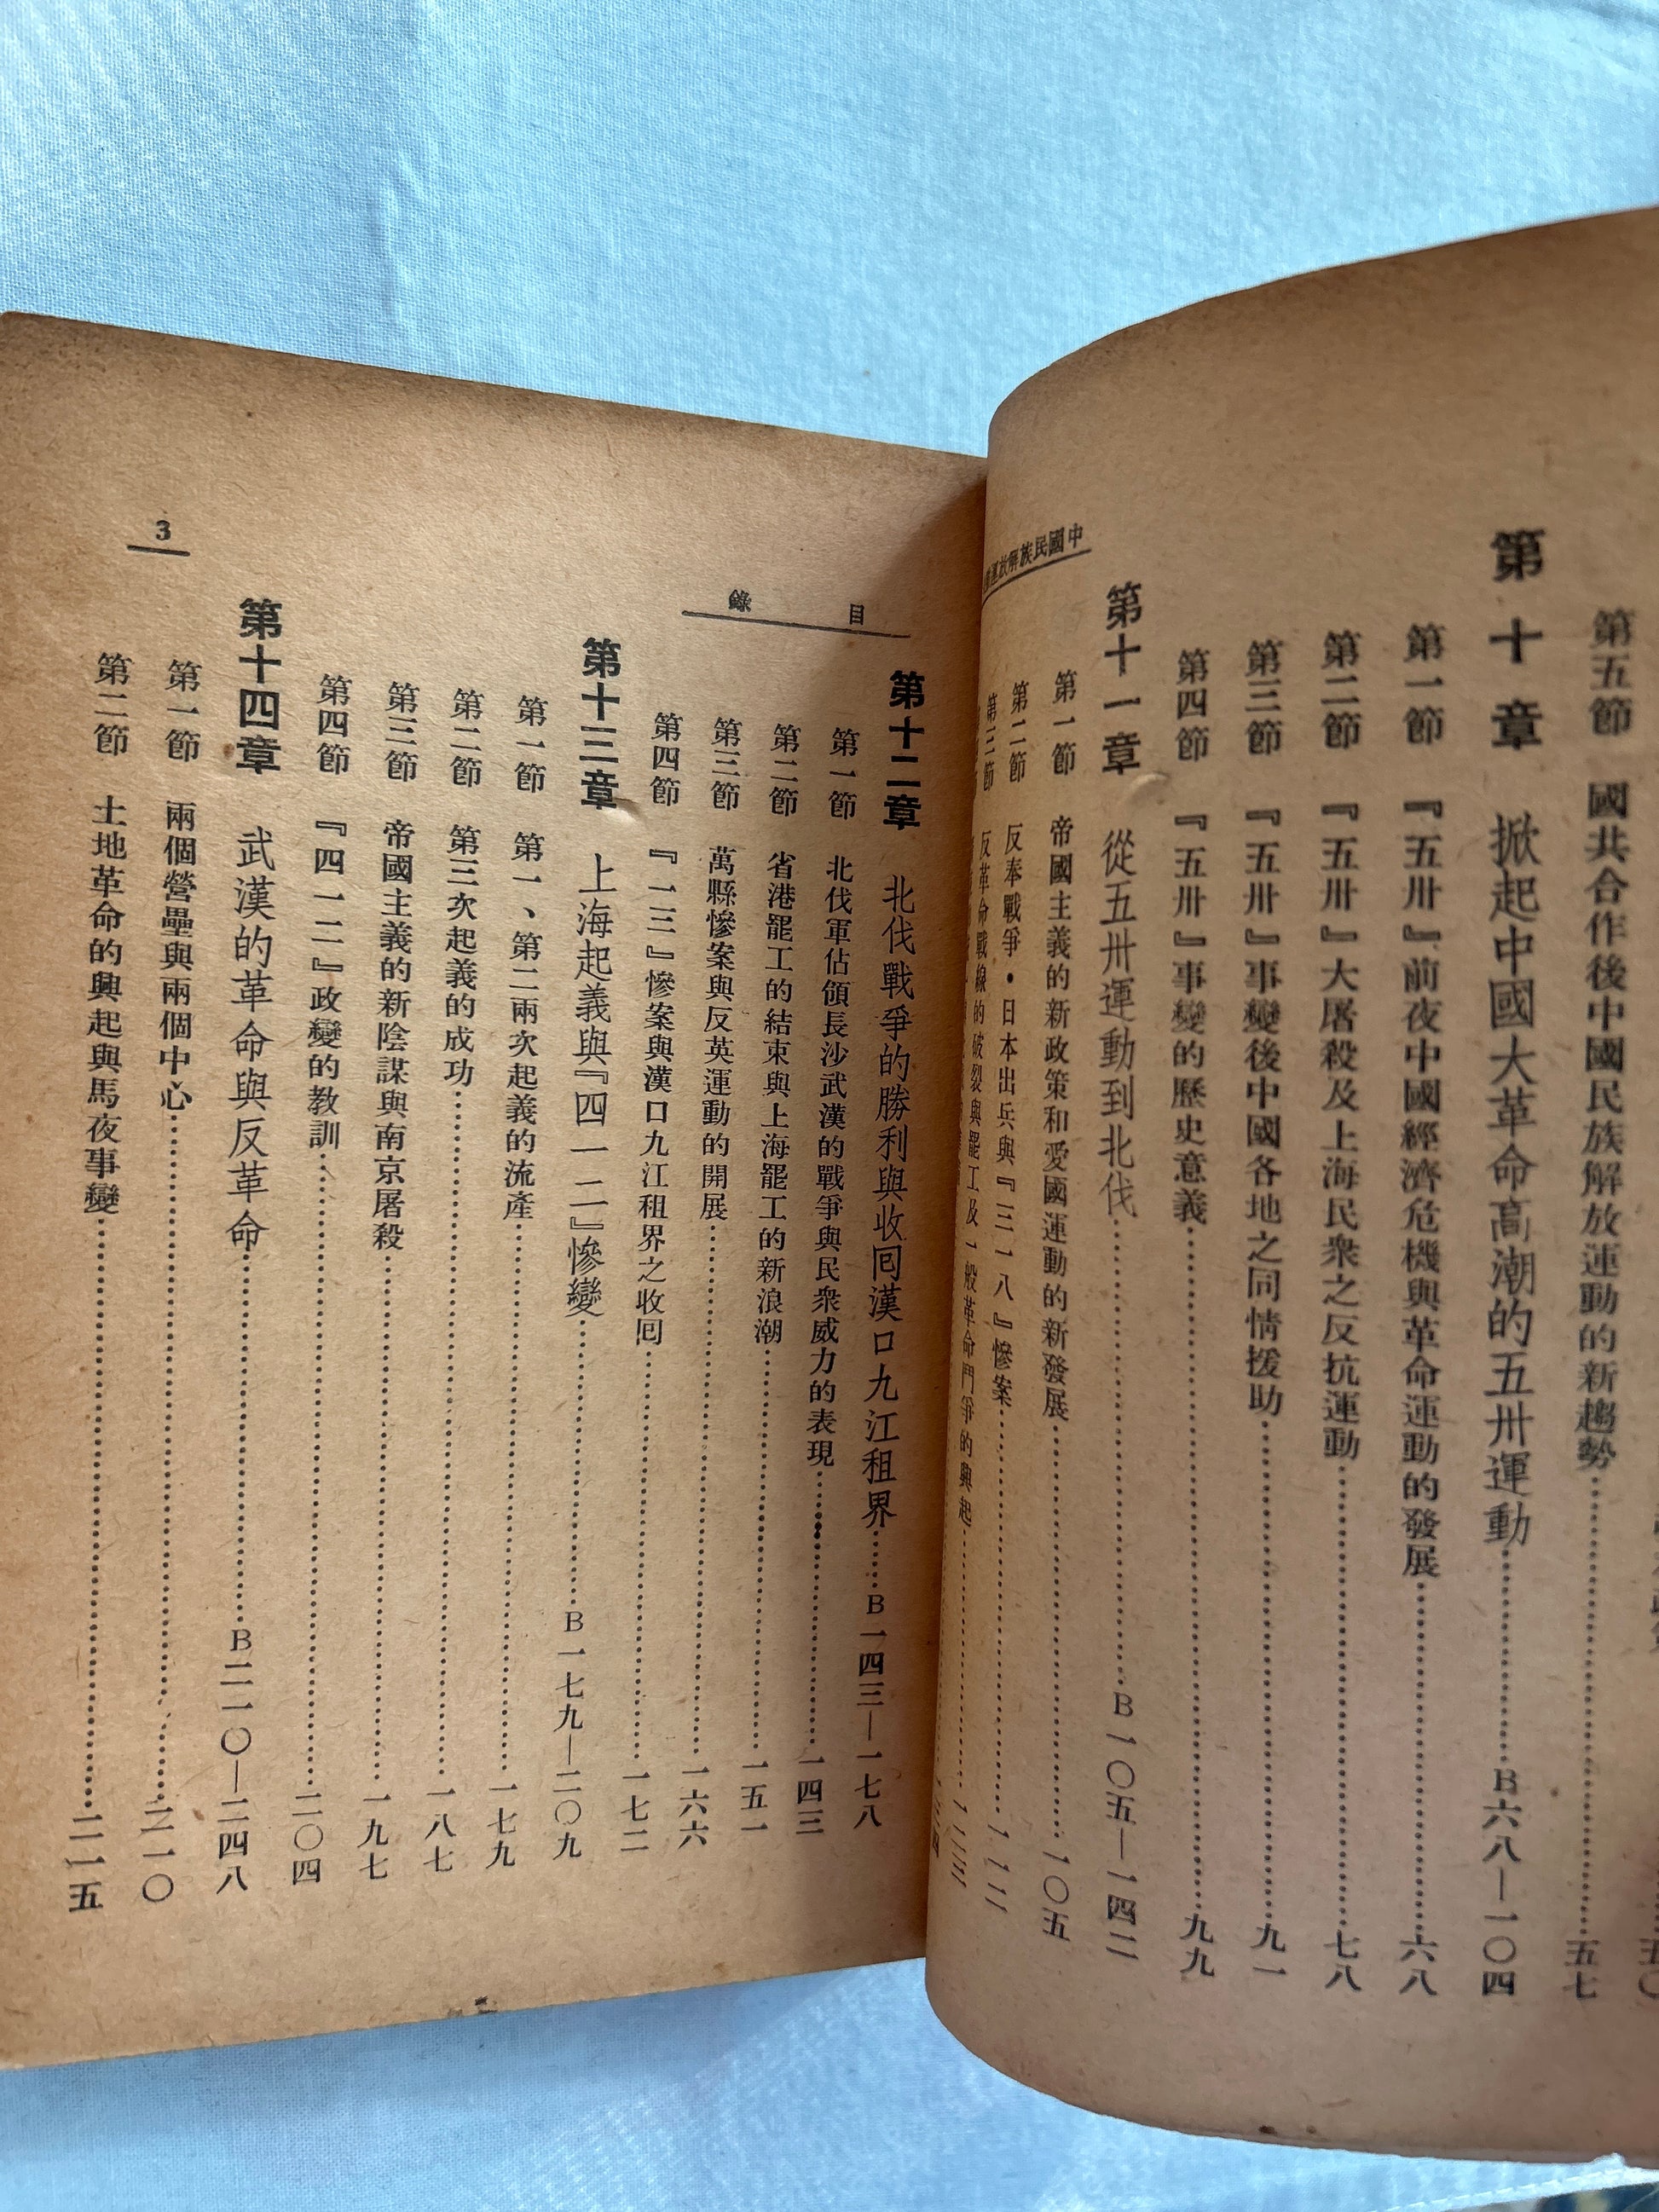 第五節 國共合作後中國民族解放運動的新趨勢……五七
第十章 掀起中國大革命高潮的五卅運動……B六八—一〇四
第一節 『五卅』前夜中國經濟危機與革命運動的發展……六八
第二節 『五卅』大屠殺及上海民衆之反抗運動……七八
第三節 『五卅』事變後中國各地之同情援助……九一
第四節 『五卅』事變的歷史意義……九九
第十一章 從五卅運動到北伐……B一〇五—一四二
第一節 帝國主義的新政策和愛國運動的新發展……一〇五
第二節 反奉戰爭・日本出兵與『三一八』慘案
第三節 反革命戰線的破裂與罷工及一般革命鬥爭的興起
中國民族解放運
目錄
第十二章 北伐戰爭的勝利與收囘漢口九江租界……B一四三—一七八
第一節 北伐軍佔領長沙武漢的戰爭與民衆威力的表現……一四三
第二節 省港罷工的結束與上海罷工的新浪潮……一五一
第三節 萬縣慘案與反英運動的開展……一六六
第四節 『一三』慘案與漢口九江租界之收囘……一七二
第十三章 上海起義與『四一二』慘變……B一七九—二〇九
第一節 第一、第二兩次起義的流產……一七九
第二節 第三次起義的成功……一八七
第三節 帝國主義的新陰謀與南京屠殺……一九七
第四節 『四一二』政變的教訓……二〇四
第十四章 武漢的革命與反革命……B二一〇—二四八
第一節 兩個營壘與兩個中心……二一〇
第二節 土地革命的興起與馬夜事變……二一五
3